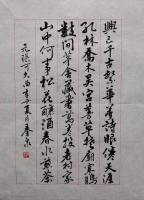 興亡千古繁華夢詩眼倦天涯
孔林喬木吳宮蔓草楚廟寒鴉
數間茅舍藏書萬卷投老村家
山中何事松花釀酒春水煎茶
元張可久